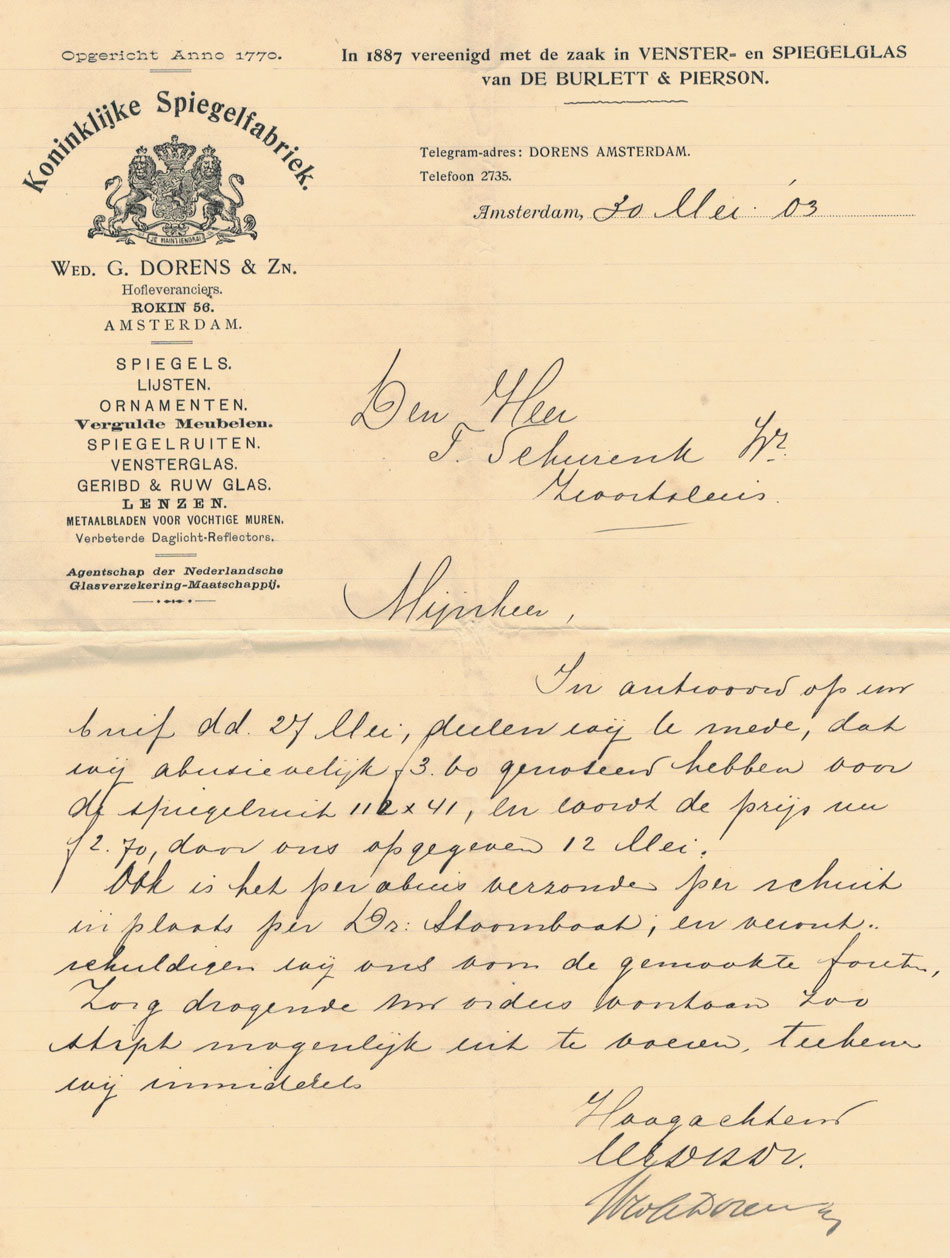 Opgericht Anno 1770.
Koninklijke Spiegelfabriek.
JE MAINTIENDRAI
WED. G. DORENS & ZN.
Hofleveranciers.
ROKIN 56.
AMSTERDAM.
SPIEGELS.
LIJSTEN.
ORNAMENTEN.
Vergulde Meubelen.
SPIEGELRUITEN.
VENSTERGLAS.
GERIBD & RUW GLAS.
LENZEN.
METAALBLADEN VOOR VOCHTIGE MUREN.
Verbeterde Daglicht-Reflectors.
Agentschap der Nederlandsche
Glasverzekering-Maatschappij.
In 1887 vereenigd met de zaak in VENSTER- en SPIEGELGLAS
van DE BURLETT & PIERSON.
Telegram-adres: DORENS AMSTERDAM.
Telefoon 2735.
Amsterdam, 30 Mei '03
Den Heer
T. Schurenk Wz.
Zwartsluis.
Mijnheer,
In antwoord op uw
brief dd. 27 Mei, deelen wij U mede, dat
wij abusievelijk f 3.60 genoteerd hebben voor
de spiegelruit 112 x 41, en wordt de prijs nu
f 2.70, door ons opgegeven 12 Mei.
Ook is het per abuis verzonden per schuit
in plaats per Dr: Stoomboot, en veront-
schuldigen wij ons voor de gemaakte fouten,
Zorg dragende uw orders voortaan zoo
stipt mogenlijk uit te voeren, teekenen
wij inmiddels
Hoogachtend